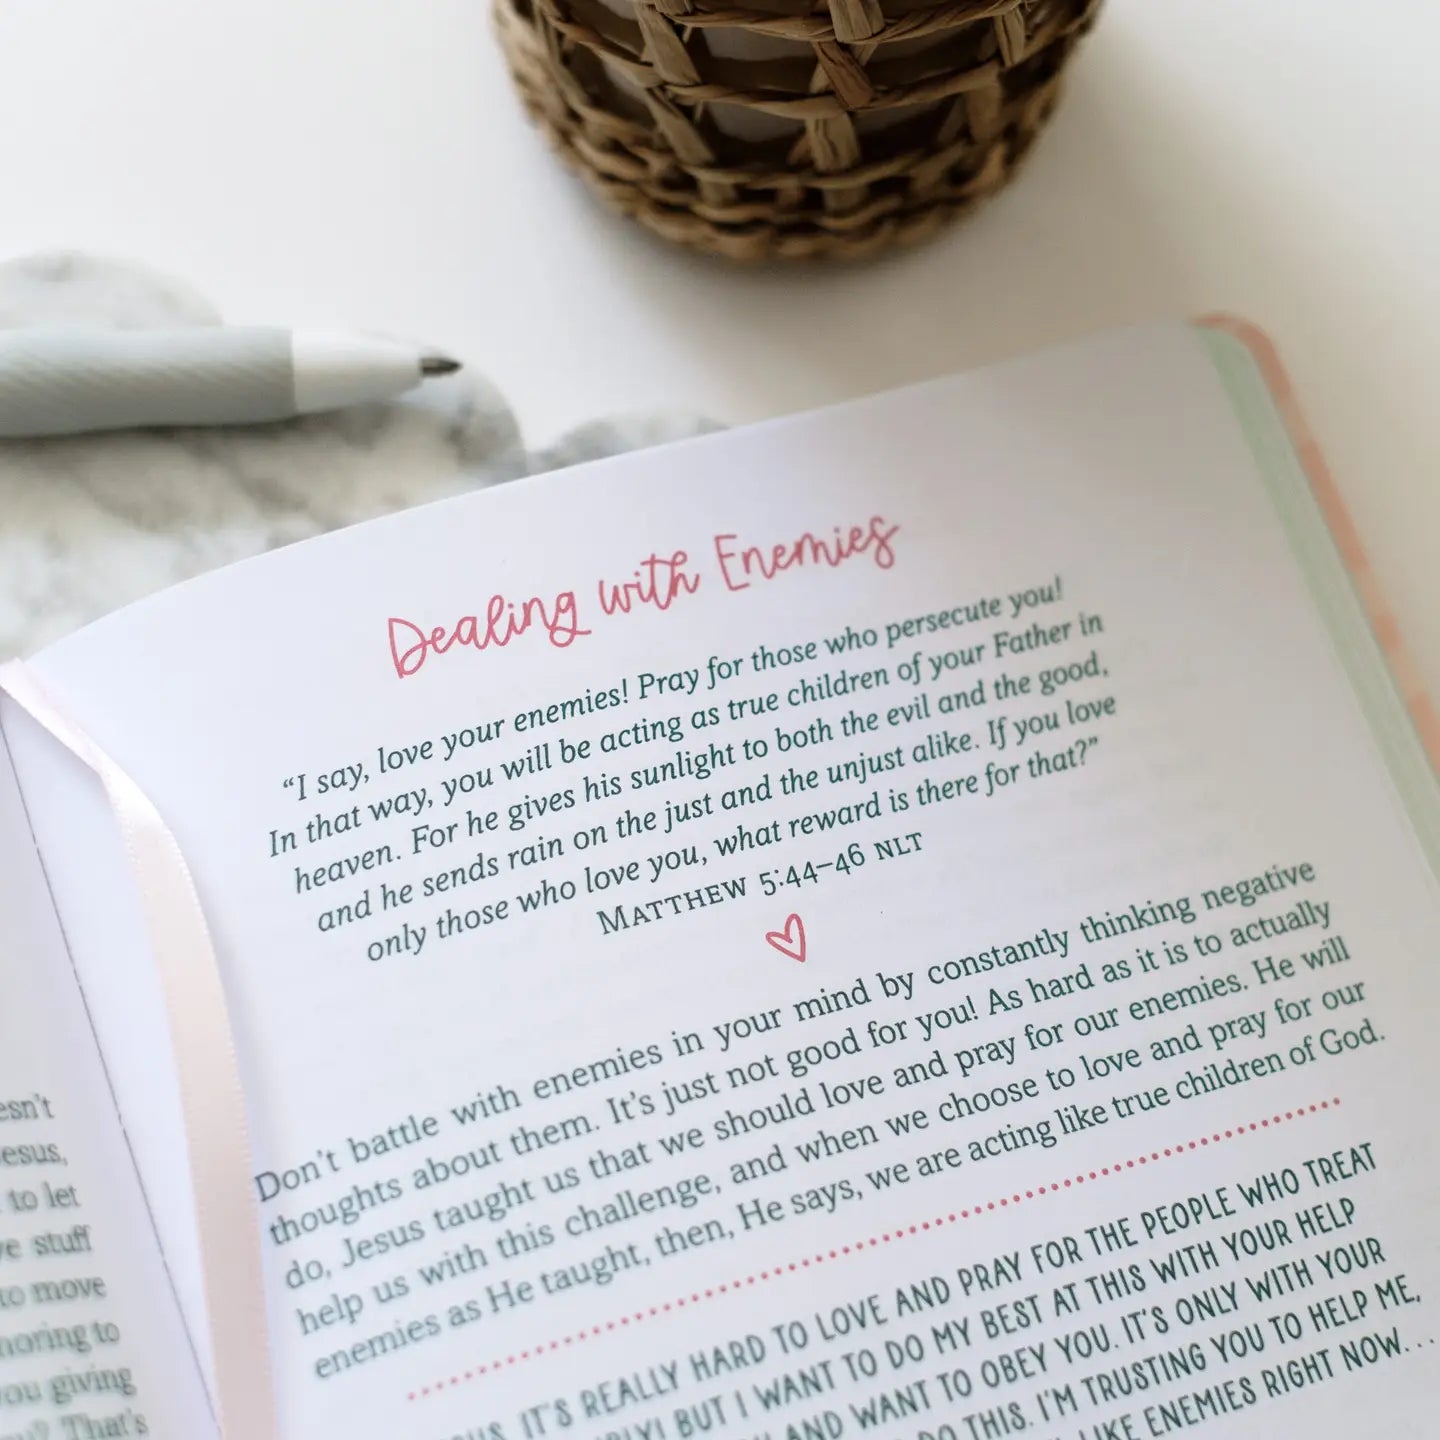 Dealing with Enemies
“I say, love your enemies! Pray for those who persecute you!
In that way, you will be acting as true children of your Father in
heaven. For he gives his sunlight to both the evil and the good,
and he sends rain on the just and the unjust alike. If you love
only those who love you, what reward is there for that?”
MATTHEW 5:44–46 NLT
Don't battle with enemies in your mind by constantly thinking negative
thoughts about them. It's just not good for you! As hard as it is to actually
do, Jesus taught us that we should love and pray for our enemies. He will
help us with this challenge, and when we choose to love and pray for our
enemies as He taught, then, He says, we are acting like true children of God.
IT'S REALLY HARD TO LOVE AND PRAY FOR THE PEOPLE WHO TREAT
BUT I WANT TO DO MY BEST AT THIS WITH YOUR HELP
AND WANT TO OBEY YOU. IT'S ONLY WITH YOUR
DO THIS. I'M TRUSTING YOU TO HELP ME,
LIKE ENEMIES RIGHT NOW...
to let
stuff
to move
to
you giving
That's